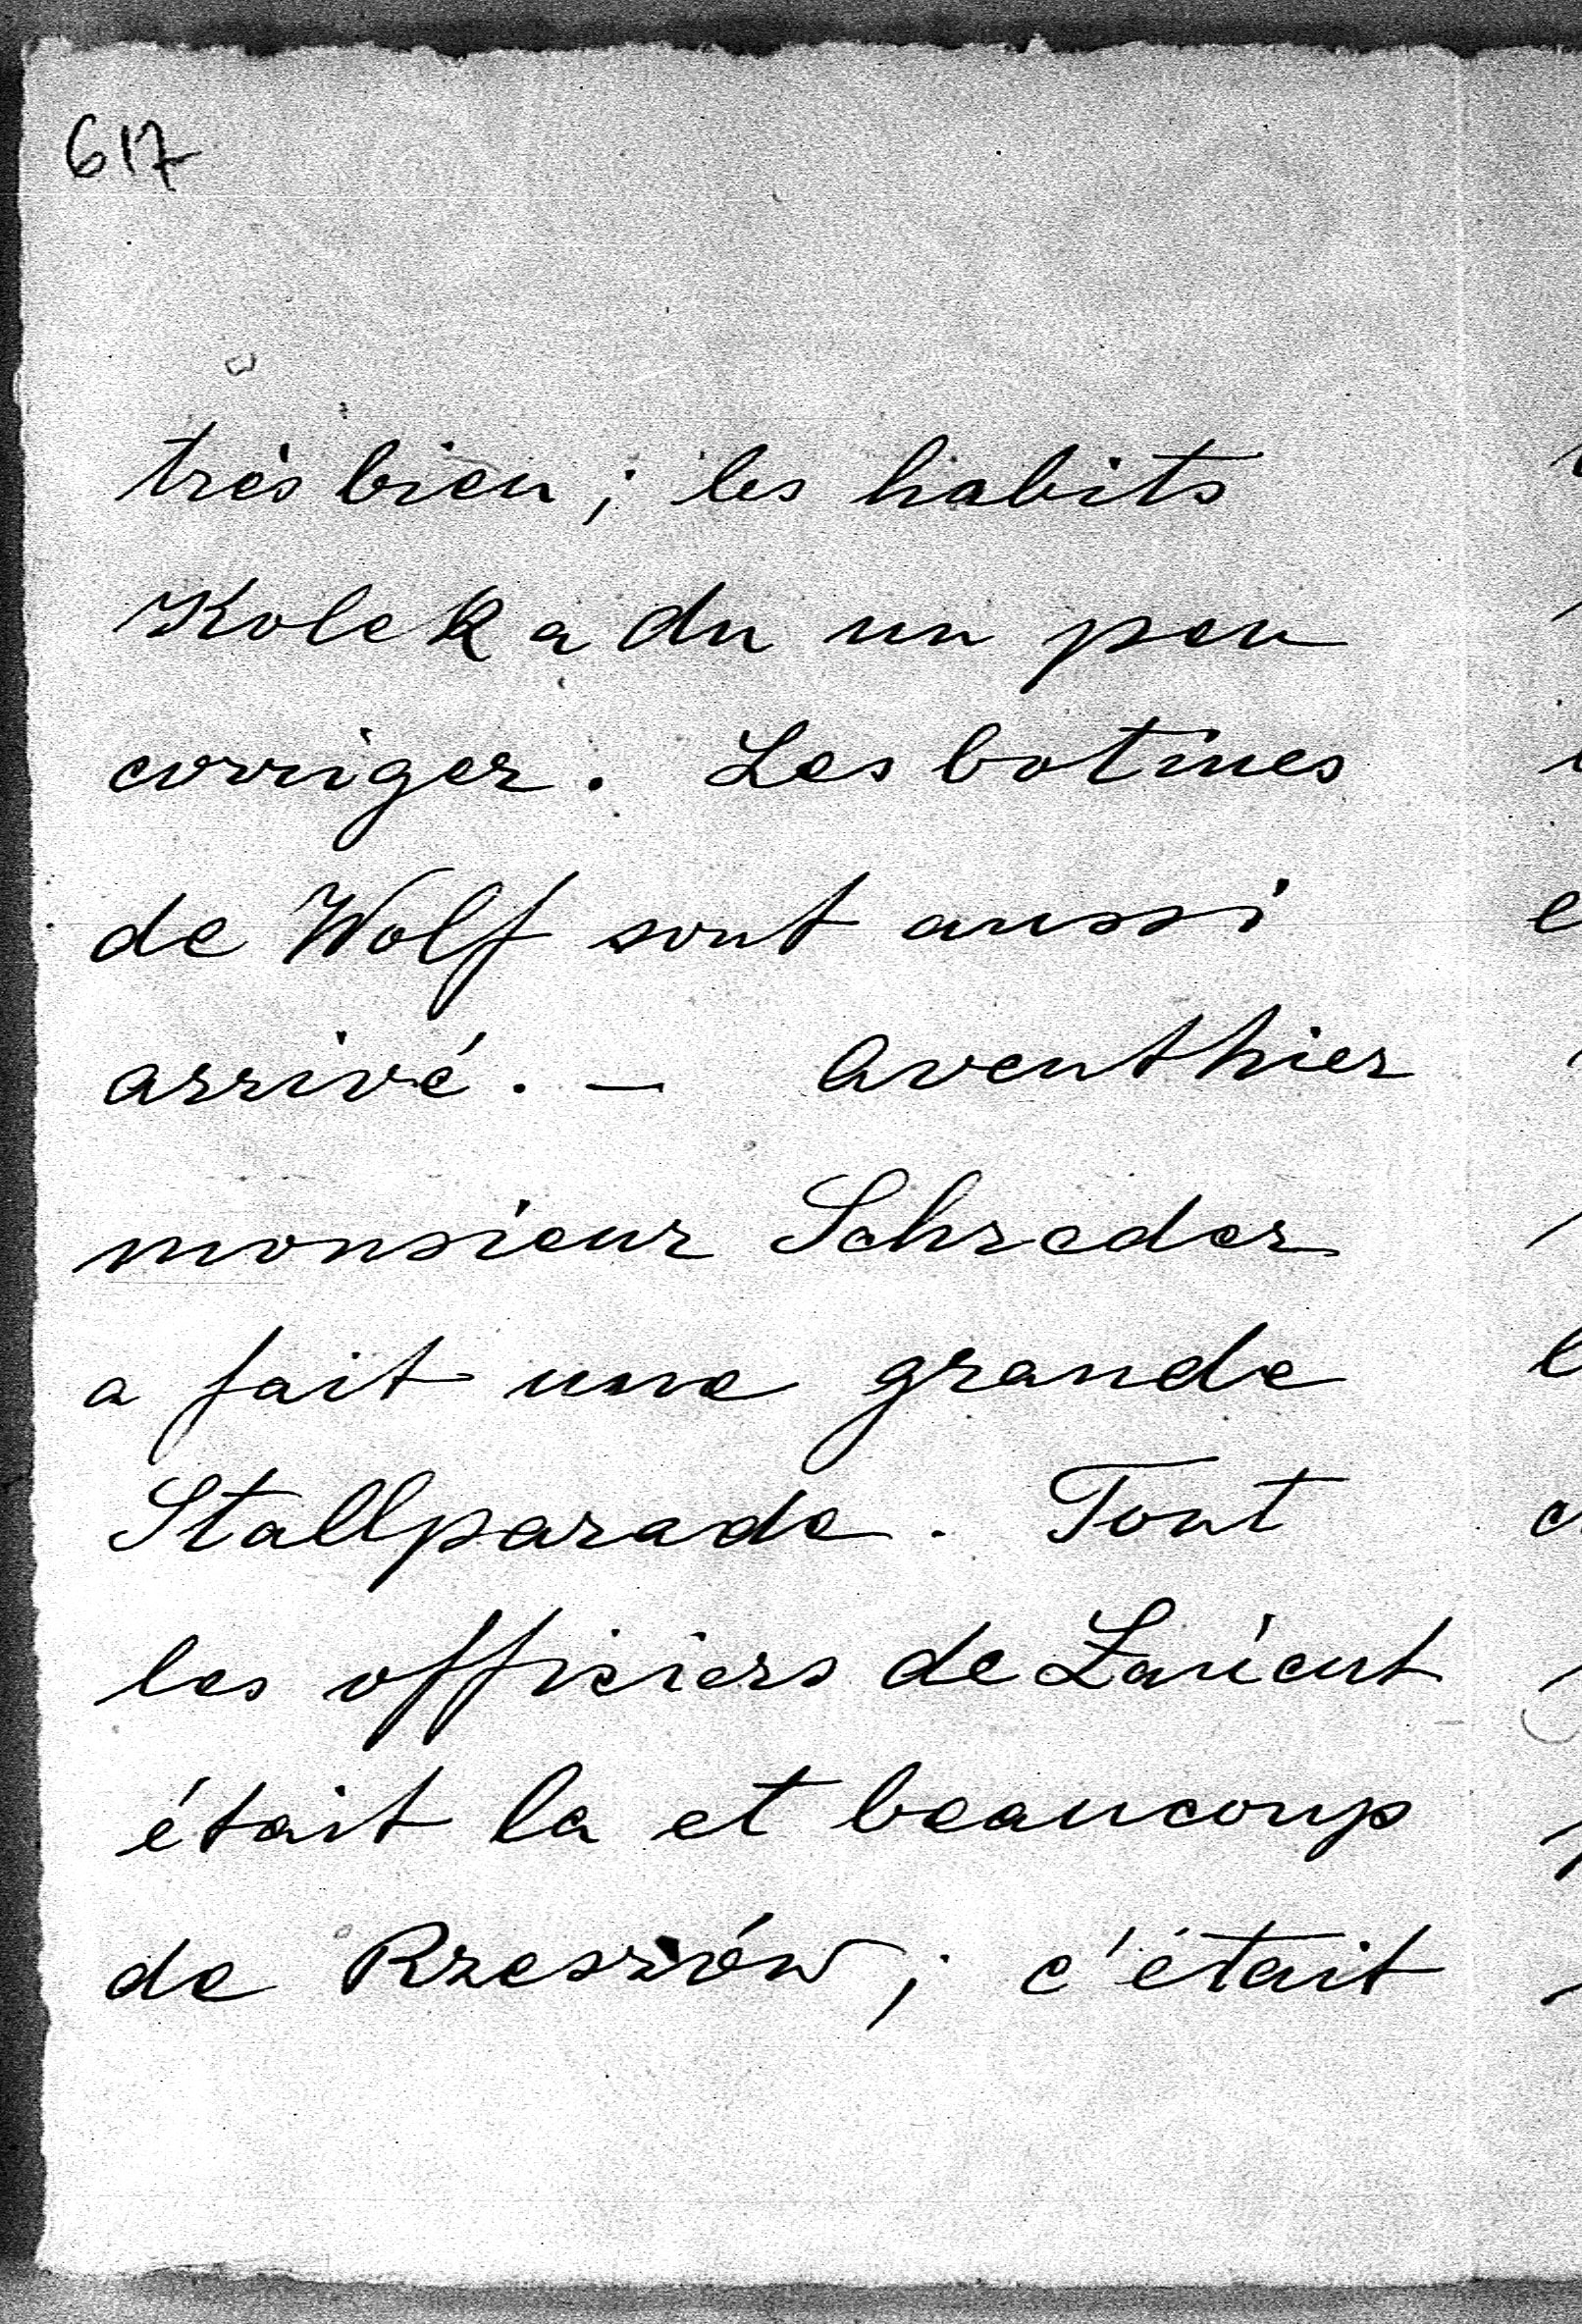 617
très bien ; les habits
Kolek a du un peu
corriger. Les botines
de Wolf sont aussi
arrivé. — Aventhier
monsieur Schreder
a fait une grande
Stallparade. Tout
les officiers de Łańcut
était la et beaucoup
de Rzeszów ; c'était